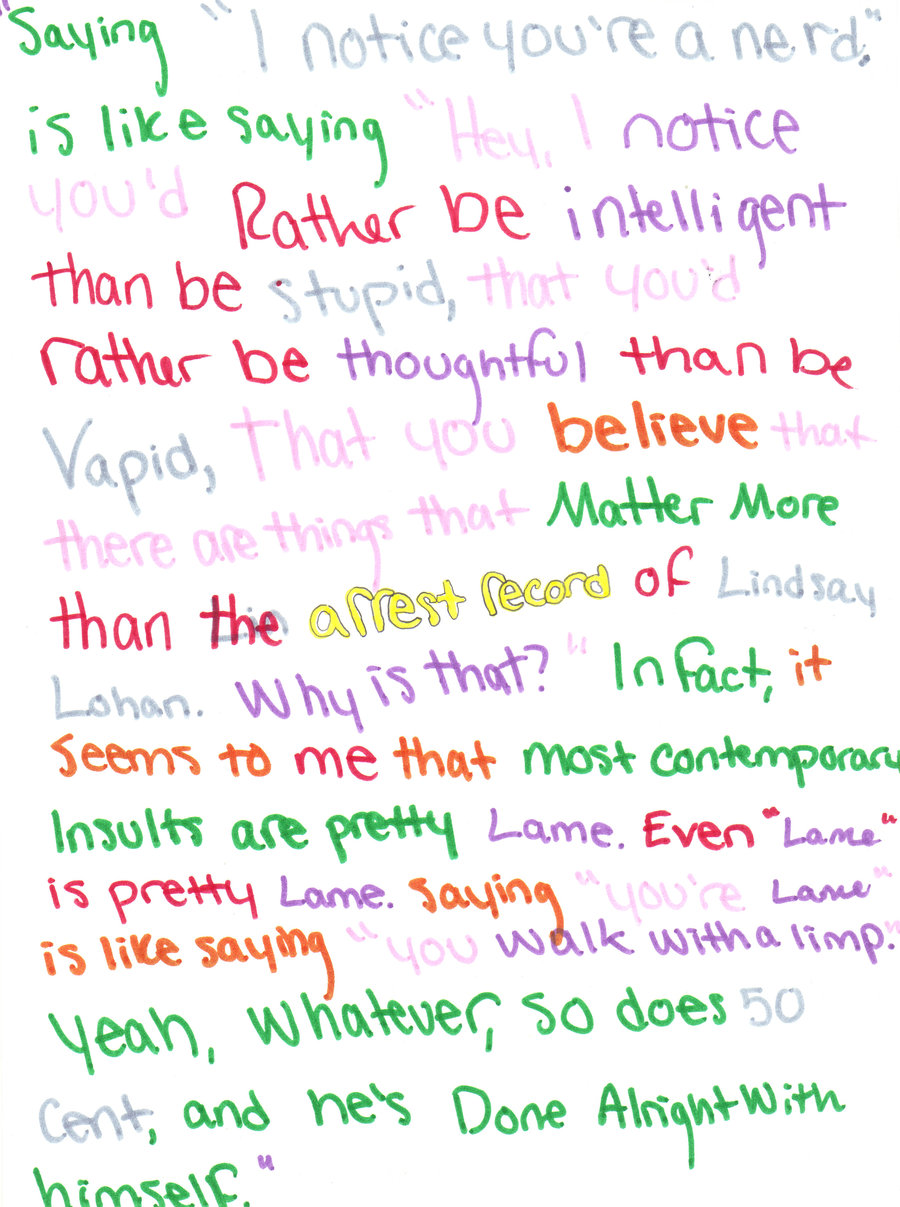 "Saying "I notice you're a nerd."
is like saying "Hey, I notice
you'd Rather be intelligent
than be stupid, that you'd
rather be thoughtful than be
Vapid, That you believe that
there are things that Matter More
than the arrest record of Lindsay
Lohan. Why is that?" In fact, it
seems to me that most contemporary
Insults are pretty Lame. Even "Lame"
is pretty Lame. Saying "you're Lame"
is like saying "you walk with a limp."
yeah, whatever, so does 50
Cent, and he's Done Alright With
himself."